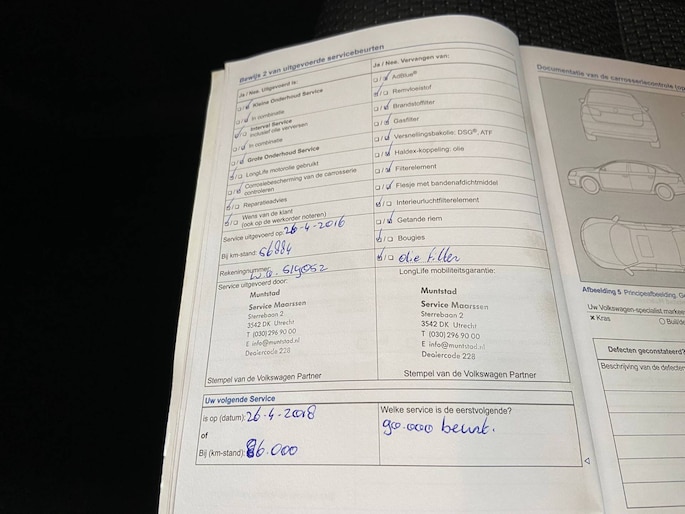 Bewijs 2 van uitgevoerde servicebeurten
Ja / Nee, Uitgevoerd is:
Kleine Onderhoud Service
In combinatie
Interval Service
inclusief olie verversen
In combinatie
Grote Onderhoud Service
LongLife motorolie gebruikt
Corrosiebescherming van de carrosserie
controleren
Reparatieadvies
Wens van de klant
(ook op de werkorder noteren)
Service uitgevoerd op: 26-4-2016
Bij km-stand: 56884
Rekeningnummer: w.o. 519052
Service uitgevoerd door:
Muntstad
Service Maarssen
Sterrebaan 2
3542 DK Utrecht
T (030) 296 90 00
E info@muntstad.nl
Dealercode 228
Stempel van de Volkswagen Partner
Ja / Nee, Vervangen van:
AdBlue®
Remvloeistof
Brandstoffilter
Gasfilter
Versnellingsbakolie: DSG®, ATF
Haldex-koppeling: olie
Filterelement
Flesje met bandenafdichtmiddel
Interieurluchtfilterelement
Getande riem
Bougies
olie filter
LongLife mobiliteitsgarantie:
Muntstad
Service Maarssen
Sterrebaan 2
3542 DK Utrecht
T (030) 296 90 00
E info@muntstad.nl
Dealercode 228
Stempel van de Volkswagen Partner
Uw volgende Service
is op (datum): 26-4-2018
of
Bij (km-stand): 86.000
Welke service is de eerstvolgende?
90.000 beurt.
Documentatie van de carrosseriecontrole
Afbeelding 5 Principeafbeelding.
Uw Volkswagen-specialist
x Kras
Defecten geconstateerd?
Beschrijving van de defecten